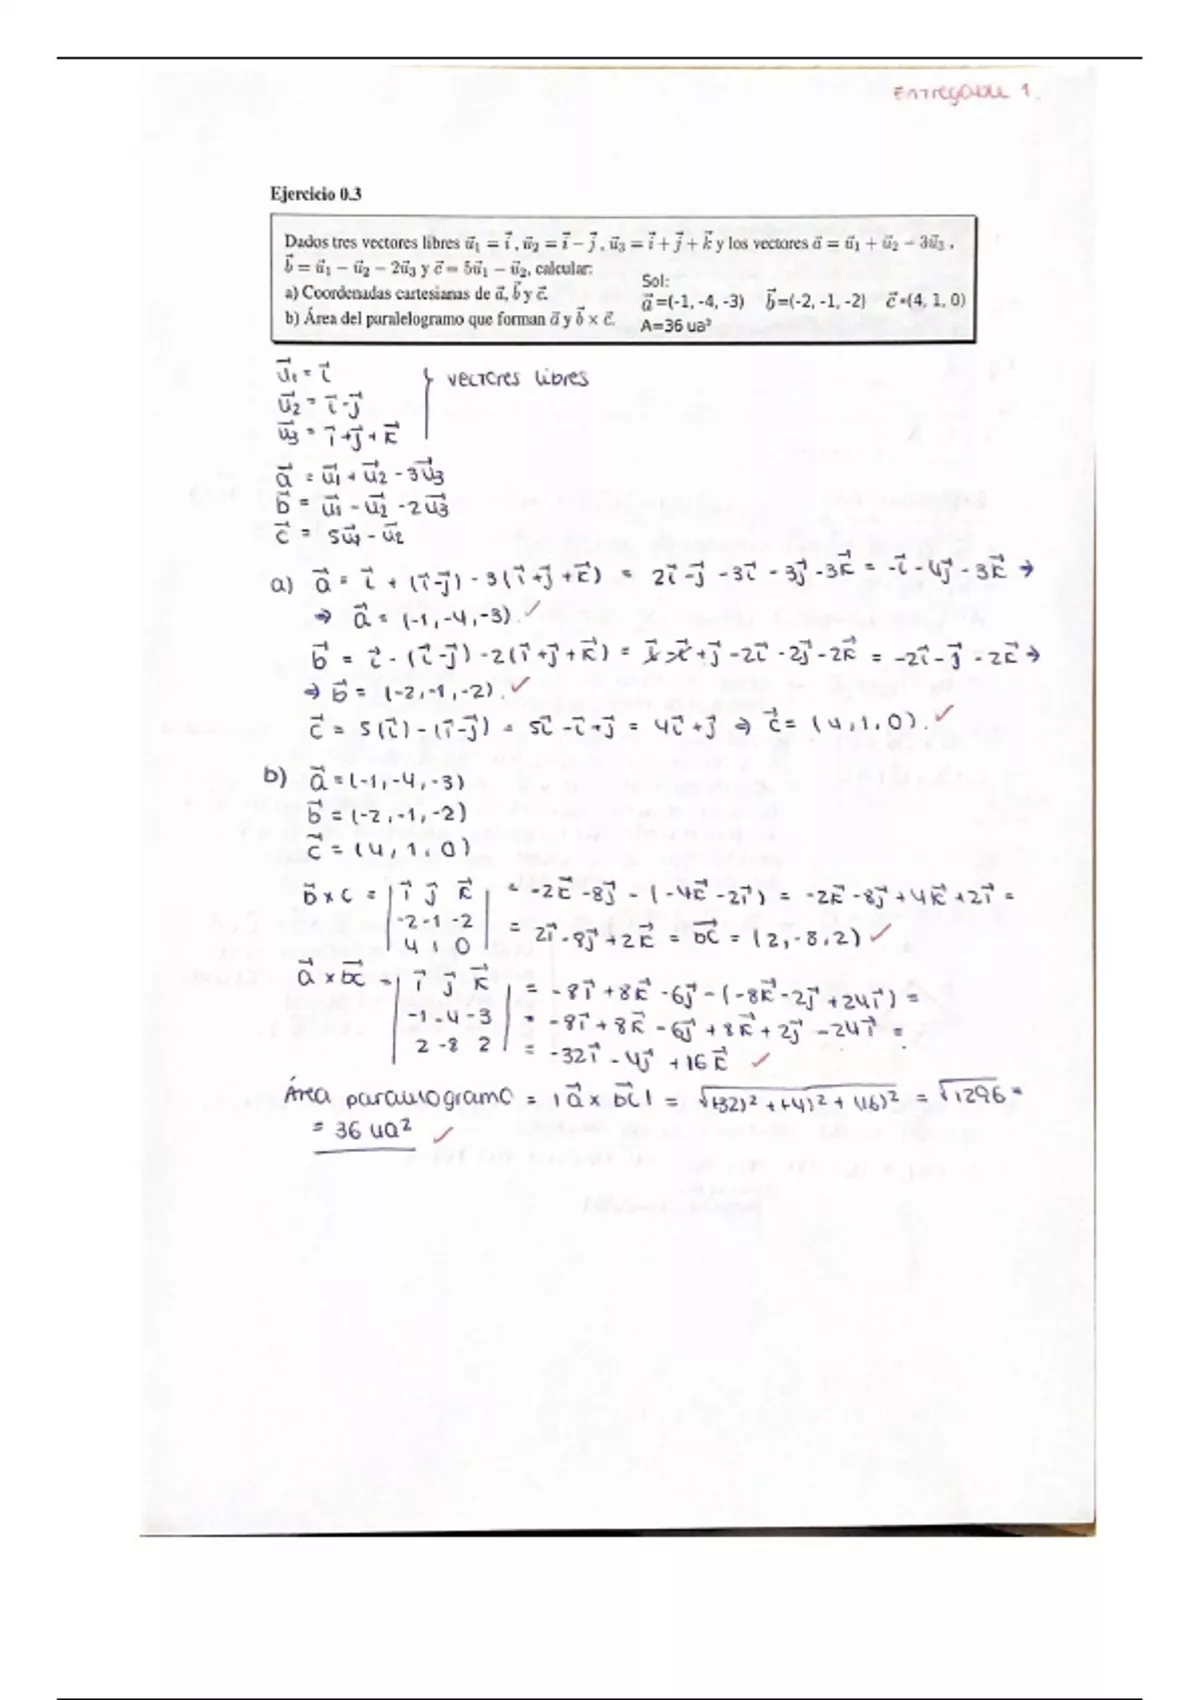 Entregable 1.
Ejercicio 0.3
Dados tres vectores libres u⃗₁ = i⃗ , u⃗₂ = i⃗ − j⃗ , u⃗₃ = i⃗ + j⃗ + k⃗ y los vectores a⃗ = u⃗₁ + u⃗₂ − 3u⃗₃ ,
b⃗ = u⃗₁ − u⃗₂ − 2u⃗₃ y c⃗ = 5u⃗₁ − u⃗₂, calcular:
Sol:
a) Coordenadas cartesianas de a⃗, b⃗ y c⃗. a⃗=(-1, -4, -3) b⃗=(-2, -1, -2) c⃗=(4, 1, 0)
b) Área del paralelogramo que forman a⃗ y b⃗ × c⃗. A=36 ua²
u⃗₁ = i⃗ } vectores libres
u⃗₂ = i⃗-j⃗
u⃗₃ = i⃗+j⃗+k⃗
a⃗ = u⃗₁ + u⃗₂ - 3u⃗₃
b⃗ = u⃗₁ - u⃗₂ - 2u⃗₃
c⃗ = 5u⃗₁ - u⃗₂
a) a⃗ = i⃗ + (i⃗-j⃗) - 3(i⃗+j⃗+k⃗) = 2i⃗-j⃗ -3i⃗ - 3j⃗-3k⃗ = -i⃗ - 4j⃗ - 3k⃗ →
→ a⃗ = (-1,-4,-3). ✓
b⃗ = i⃗ - (i⃗-j⃗) -2(i⃗+j⃗+k⃗) = i⃗-i⃗+j⃗-2i⃗ -2j⃗-2k⃗ = -2i⃗-j⃗ -2k⃗ →
→ b⃗ = (-2,-1,-2). ✓
c⃗ = 5(i⃗) - (i⃗-j⃗) = 5i⃗ -i⃗+j⃗ = 4i⃗+j⃗ → c⃗ = (4,1,0). ✓
b) a⃗ = (-1,-4,-3)
b⃗ = (-2,-1,-2)
c⃗ = (4,1,0)
b⃗ x c = | i⃗ j⃗ k⃗ | = -2k⃗ -8j⃗ - (-4k⃗ -2i⃗) = -2k⃗ -8j⃗ +4k⃗ +2i⃗ =
-2 -1 -2
4 1 0 = 2i⃗ -8j⃗ +2k⃗ = bc⃗ = (2,-8,2) ✓
a⃗ x bc⃗ = | i⃗ j⃗ k⃗ | = -8i⃗ +8k⃗ -6j⃗ -(-8k⃗-2j⃗ +24i⃗) =
-1 -4 -3 = -8i⃗ + 8k⃗ - 6j⃗ +8k⃗ +2j⃗ -24i⃗ =
2 -8 2 = -32i⃗ - 4j⃗ +16k⃗ ✓
Área paralelogramo = |a⃗ x bc⃗| = √(-32)² + (-4)² + (16)² = √1296 =
= 36 ua² ✓